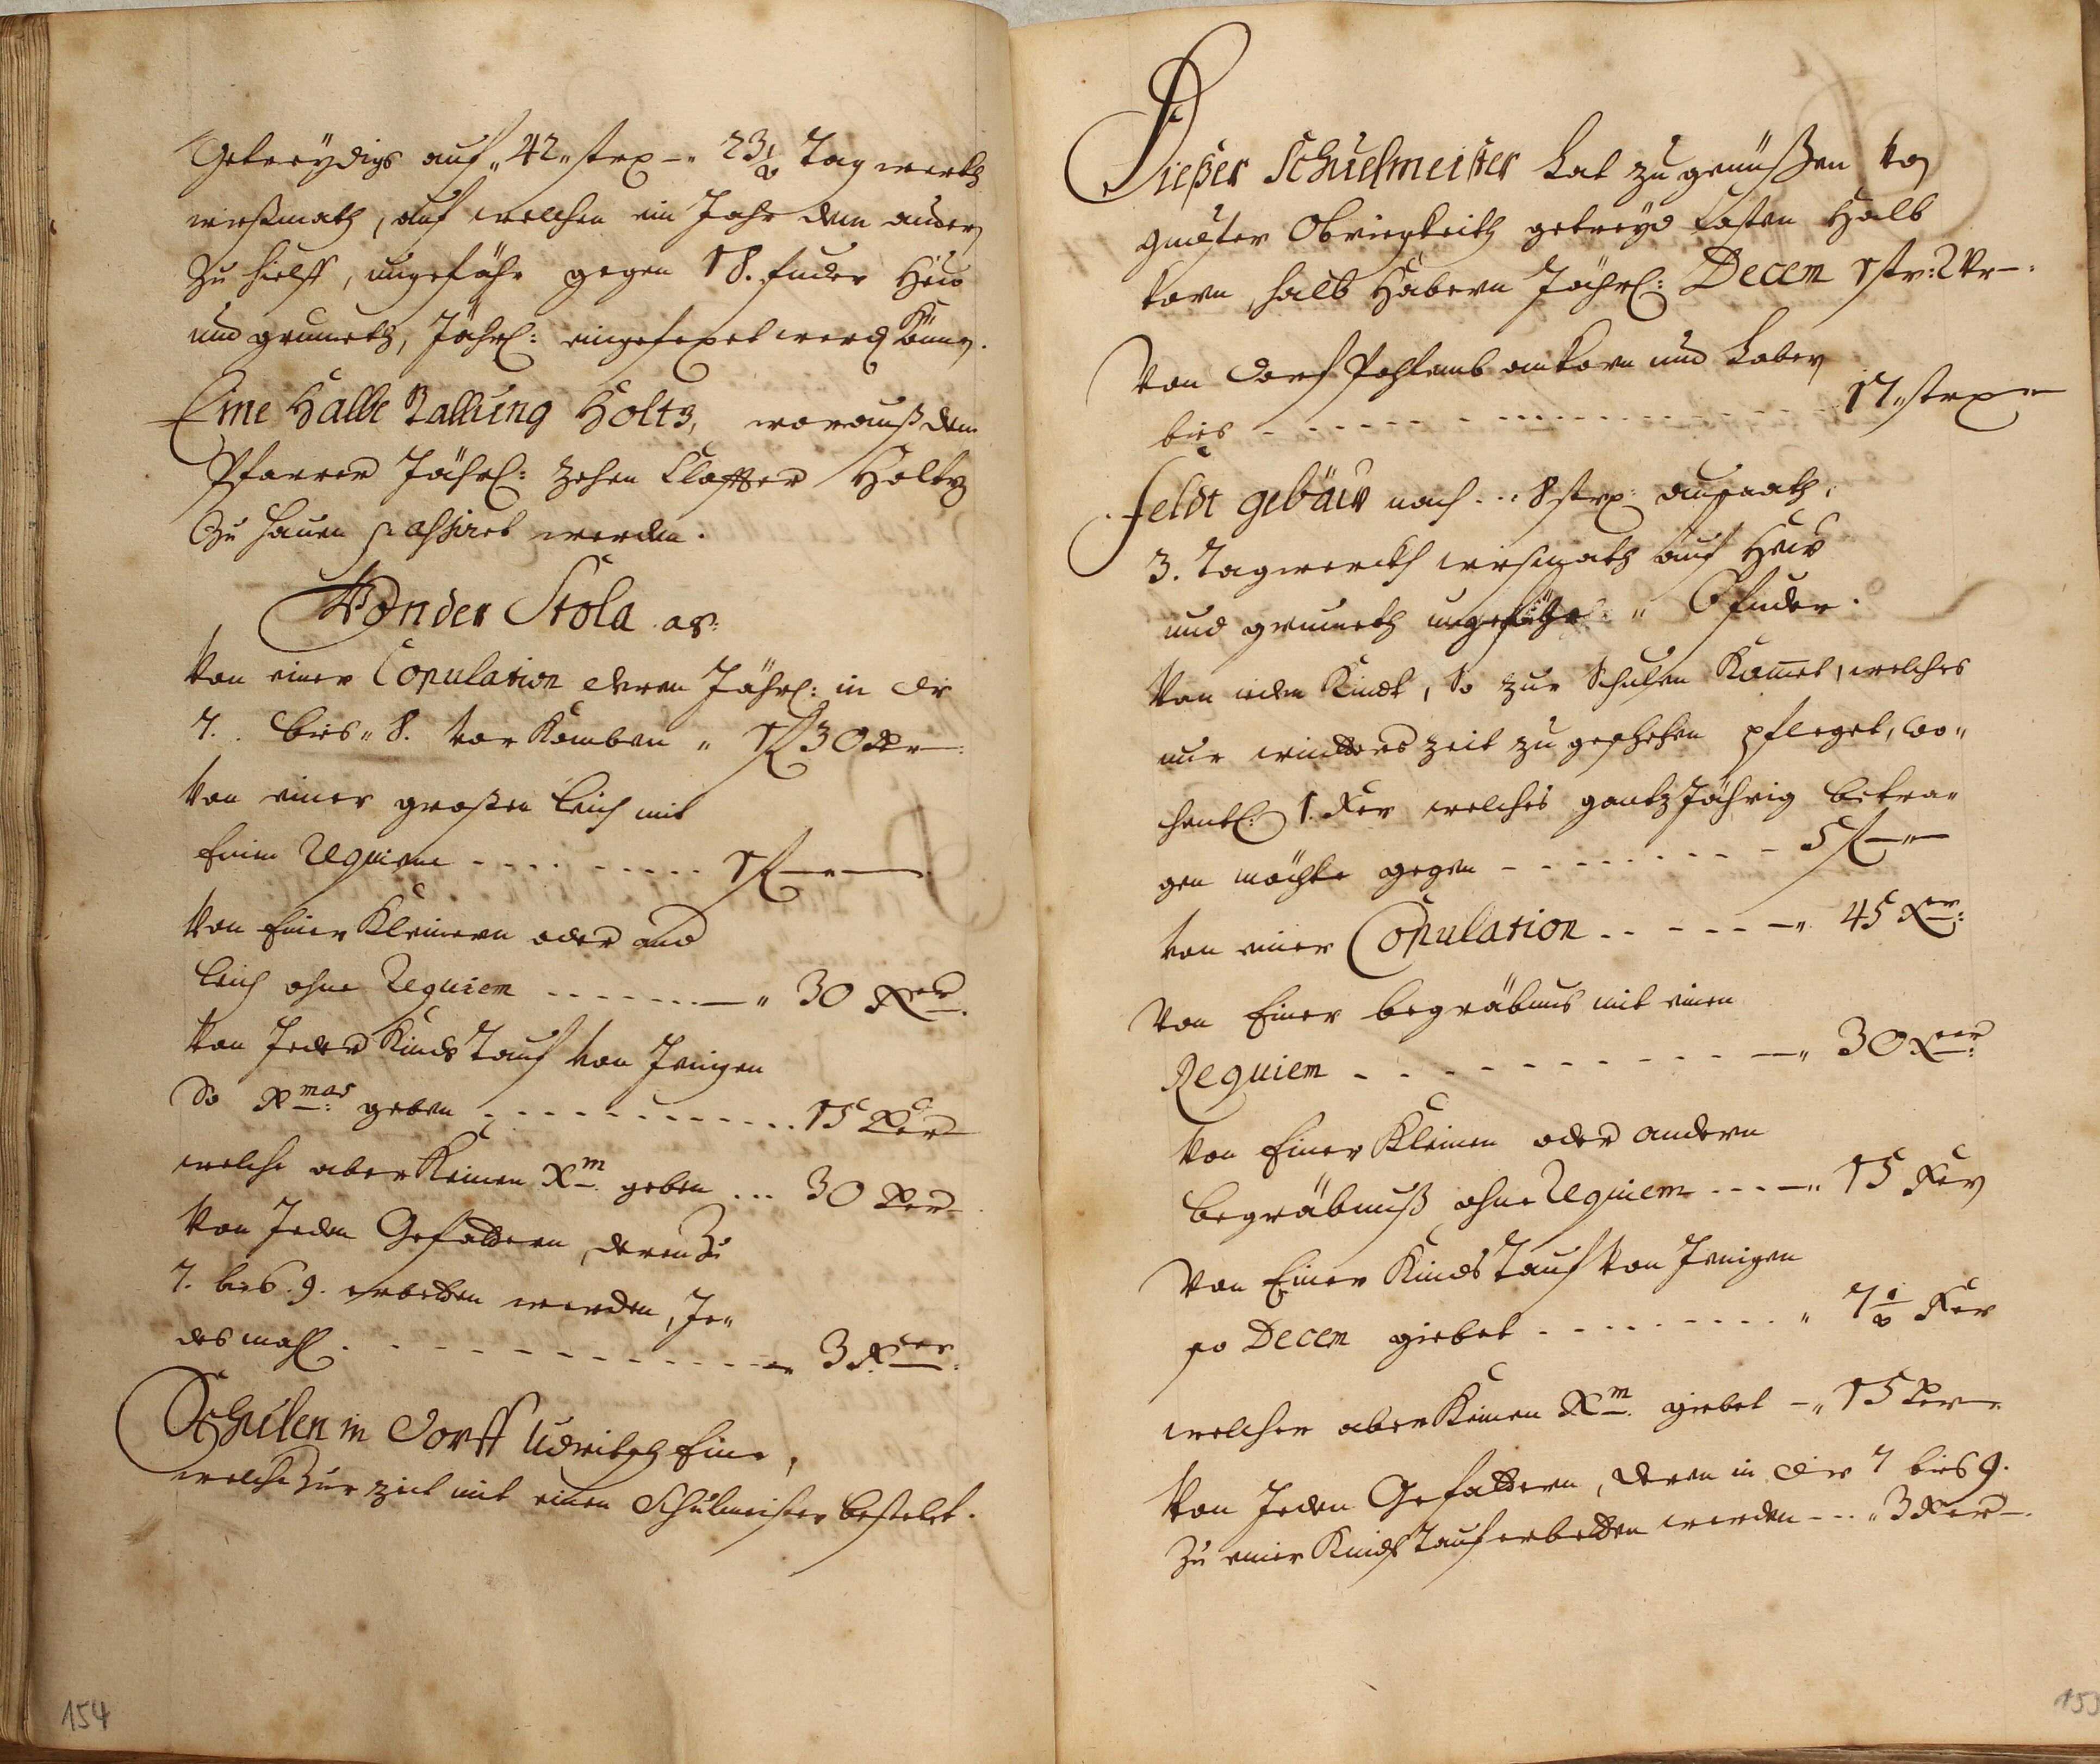 Getreÿdigs auf„ 42„ strx –„ 23 1/2 Tag werkh
wießmath, auf welchen ein Jahr dem andern
zu hielff, ungefähr gegen 18. fuder Heu
und grumeth, Jährl: eingefexet werd Könn.
Eine Halbe Zallung Holtz, worauß dem
Pfarrer Jährl: zehen Claffter Holtz
zu hauen passiret werden.
Von der Stola as:
Von einer Copulation deren Jährl: in die
7. bies„ 8. vor Komben „ 1 f 30 xr –:
Von einer großen leich mit
Einem Requiem - - - - - - - - - 1 f –„–
Von Einer Kleinern oder and
leich ohne Requiem - - - - - - - –„ 30 xer.
Von Jeder Kinds Tauf von Jenigen
So Xmas: geben - - - - - - - - - - - - 15 xer
welche aber Keinen Xm. geben ... 30 xer
Von Jeden Gefattern, deren zu
7. bies. 9. erbetten werden, Je„
desmahl. - - - - - - - - - - - - –„ 3 xer:
Schulen in Dorff Udritsch Eine,
welche zur zeit mit einen Schulmeister bestelt.
154
Dießer Schuelmeister hat zu genüßen von
gnädster Obriegkeith getreyd Casten Halb
korn, halb Habern Jährl: Decem 1 str: 2 Vr –.
Von Dorf Pohlemb an korn und haber
bies - - - - - - - - - - - - - - - - - 17„ strx„
Feldt gebäw nach ... 8 strx: außsath,
3. Tagwerckh wießmath auf Heu
und grumeth ungefähr: „ 6 fuder.
Von ieden Kindt, So zur Schulen Komet, welches
nur winters zeit zu geschehen pfleget, wo„
chentl: 1. Xer welches gantz Jährig betra„
gen möchte gegen - - - - - - - - - 5 f –„–
von einer Copulation - - - - - –„ 45 Xer:
Von Einer begräbnus mit einen
Requiem - - - - - - - - - - - - - –„ 30 Xer:
Von Einer Kleinen oder andern
begräbnuß ohne Requiem - - - –„ 15 Xer
Von Einer Kinds Tauf von Jenigen
so Decem giebet - - - - - - - - - „ 7 1/2 Xer
welcher aber Keinen Xm. giebet –„ 15 Xer„
Von Jeden Gefattern, deren in die 7 bies 9.
zu einer Kinds Tauf erbetten werden - - -„ 3 Xer –.